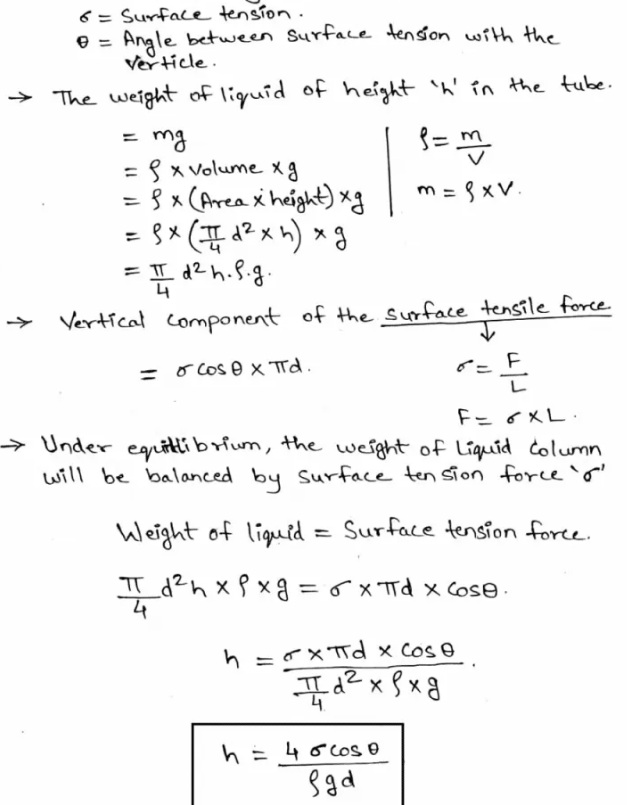 σ = Surface tension.
θ = Angle between surface tension with the
verticle.
→ The weight of liquid of height 'h' in the tube.
= mg
ρ = m/V
= ρ × volume × g
= ρ × (Area × height) × g
m = ρ × V.
= ρ × (π/4 d² × h) × g
= π/4 d² h.ρ.g.
→ Vertical component of the surface tensile force
↓
= σ cos θ × πd.
σ = F/L
F = σ × L.
→ Under equilibrium, the weight of liquid column
will be balanced by surface tension force 'σ'
Weight of liquid = Surface tension force.
π/4 d² h × ρ × g = σ × πd × cosθ.
h = σ × πd × cos θ / π/4 d² × ρ × g.
h = 4 σ cos θ / ρgd